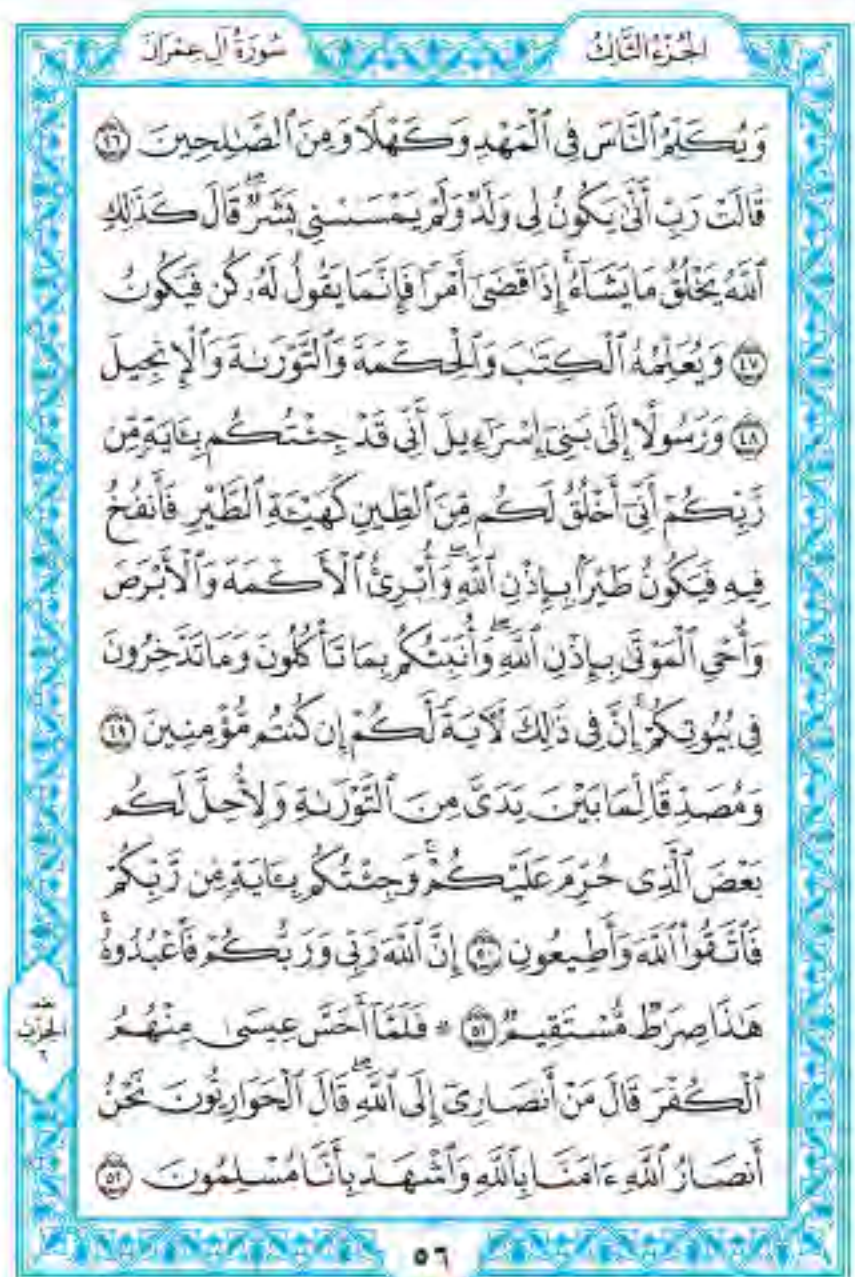 الجُزْءُ الثَّالِثُ
سُورَةُ آلِ عِمْرَانَ
وَيُكَلِّمُ ٱلنَّاسَ فِي ٱلْمَهْدِ وَكَهْلًا وَمِنَ ٱلصَّـٰلِحِينَ ٤٦
قَالَتْ رَبِّ أَنَّىٰ يَكُونُ لِي وَلَدٌ وَلَمْ يَمْسَسْنِي بَشَرٌۖ قَالَ كَذَٰلِكِ
ٱللَّهُ يَخْلُقُ مَا يَشَآءُۚ إِذَا قَضَىٰٓ أَمْرًا فَإِنَّمَا يَقُولُ لَهُۥ كُن فَيَكُونُ
٤٧ وَيُعَلِّمُهُ ٱلْكِتَـٰبَ وَٱلْحِكْمَةَ وَٱلتَّوْرَىٰةَ وَٱلْإِنجِيلَ
٤٨ وَرَسُولًا إِلَىٰ بَنِيٓ إِسْرَٰٓءِيلَ أَنِّي قَدْ جِئْتُكُم بِـَٔايَةٍ مِّن
رَّبِّكُمْ أَنِّيٓ أَخْلُقُ لَكُم مِّنَ ٱلطِّينِ كَهَيْـَٔةِ ٱلطَّيْرِ فَأَنفُخُ
فِيهِ فَيَكُونُ طَيْرًۢا بِإِذْنِ ٱللَّهِۖ وَأُبْرِئُ ٱلْأَكْمَهَ وَٱلْأَبْرَصَ
وَأُحْيِ ٱلْمَوْتَىٰ بِإِذْنِ ٱللَّهِۖ وَأُنَبِّئُكُم بِمَا تَأْكُلُونَ وَمَا تَدَّخِرُونَ
فِي بُيُوتِكُمْۚ إِنَّ فِي ذَٰلِكَ لَـَٔايَةً لَّكُمْ إِن كُنتُم مُّؤْمِنِينَ ٤٩
وَمُصَدِّقًا لِّمَا بَيْنَ يَدَيَّ مِنَ ٱلتَّوْرَىٰةِ وَلِأُحِلَّ لَكُم
بَعْضَ ٱلَّذِي حُرِّمَ عَلَيْكُمْۚ وَجِئْتُكُم بِـَٔايَةٍ مِّن رَّبِّكُمْ
فَٱتَّقُوا۟ ٱللَّهَ وَأَطِيعُونِ ٥٠ إِنَّ ٱللَّهَ رَبِّي وَرَبُّكُمْ فَٱعْبُدُوهُۗ
هَـٰذَا صِرَٰطٌ مُّسْتَقِيمٌ ٥١ ۞ فَلَمَّآ أَحَسَّ عِيسَىٰ مِنْهُمُ
ٱلْكُفْرَ قَالَ مَنْ أَنصَارِيٓ إِلَى ٱللَّهِۖ قَالَ ٱلْحَوَارِيُّونَ نَحْنُ
أَنصَارُ ٱللَّهِ ءَامَنَّا بِٱللَّهِ وَٱشْهَدْ بِأَنَّا مُسْلِمُونَ ٥٢
الحزب
٦
٥٦